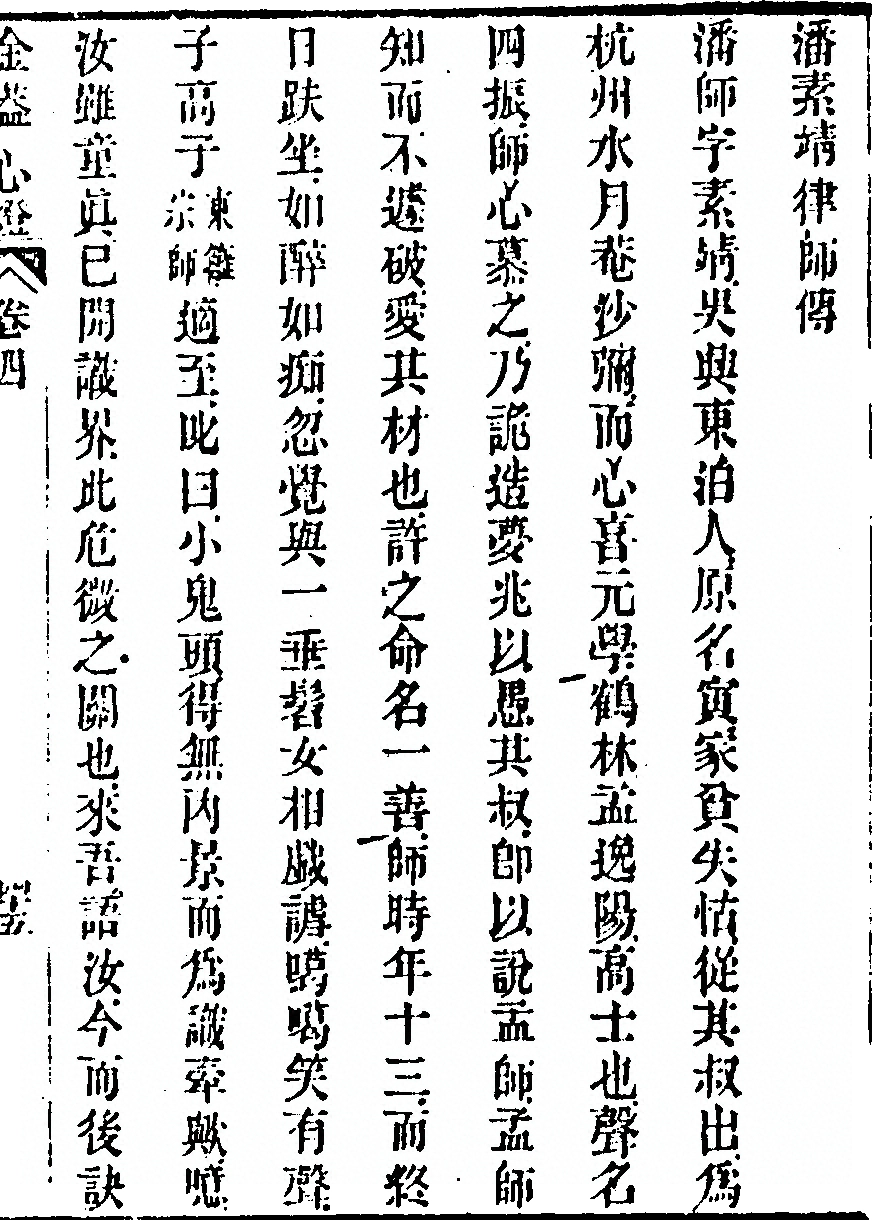 潘素靖律師傳
潘師字素靖吳興東泊人原名寅家貧失怙從其叔出爲
杭州水月菴沙彌而心喜元學鶴林孟逸陽高士也聲名
四振師心慕之乃詭造夢兆以愚其叔卽以說孟師孟師
知而不遽破愛其材也許之命名一善師時年十三而終
日趺坐如醉如痴忽覺與一垂髫女相戲謔噶噶笑有聲
子高子東籬宗師適至叱曰小鬼頭得無內景而爲識牽歟噫
汝雖童眞已開識界此危微之關也來吾語汝今而後訣
金蓋心燈 卷四